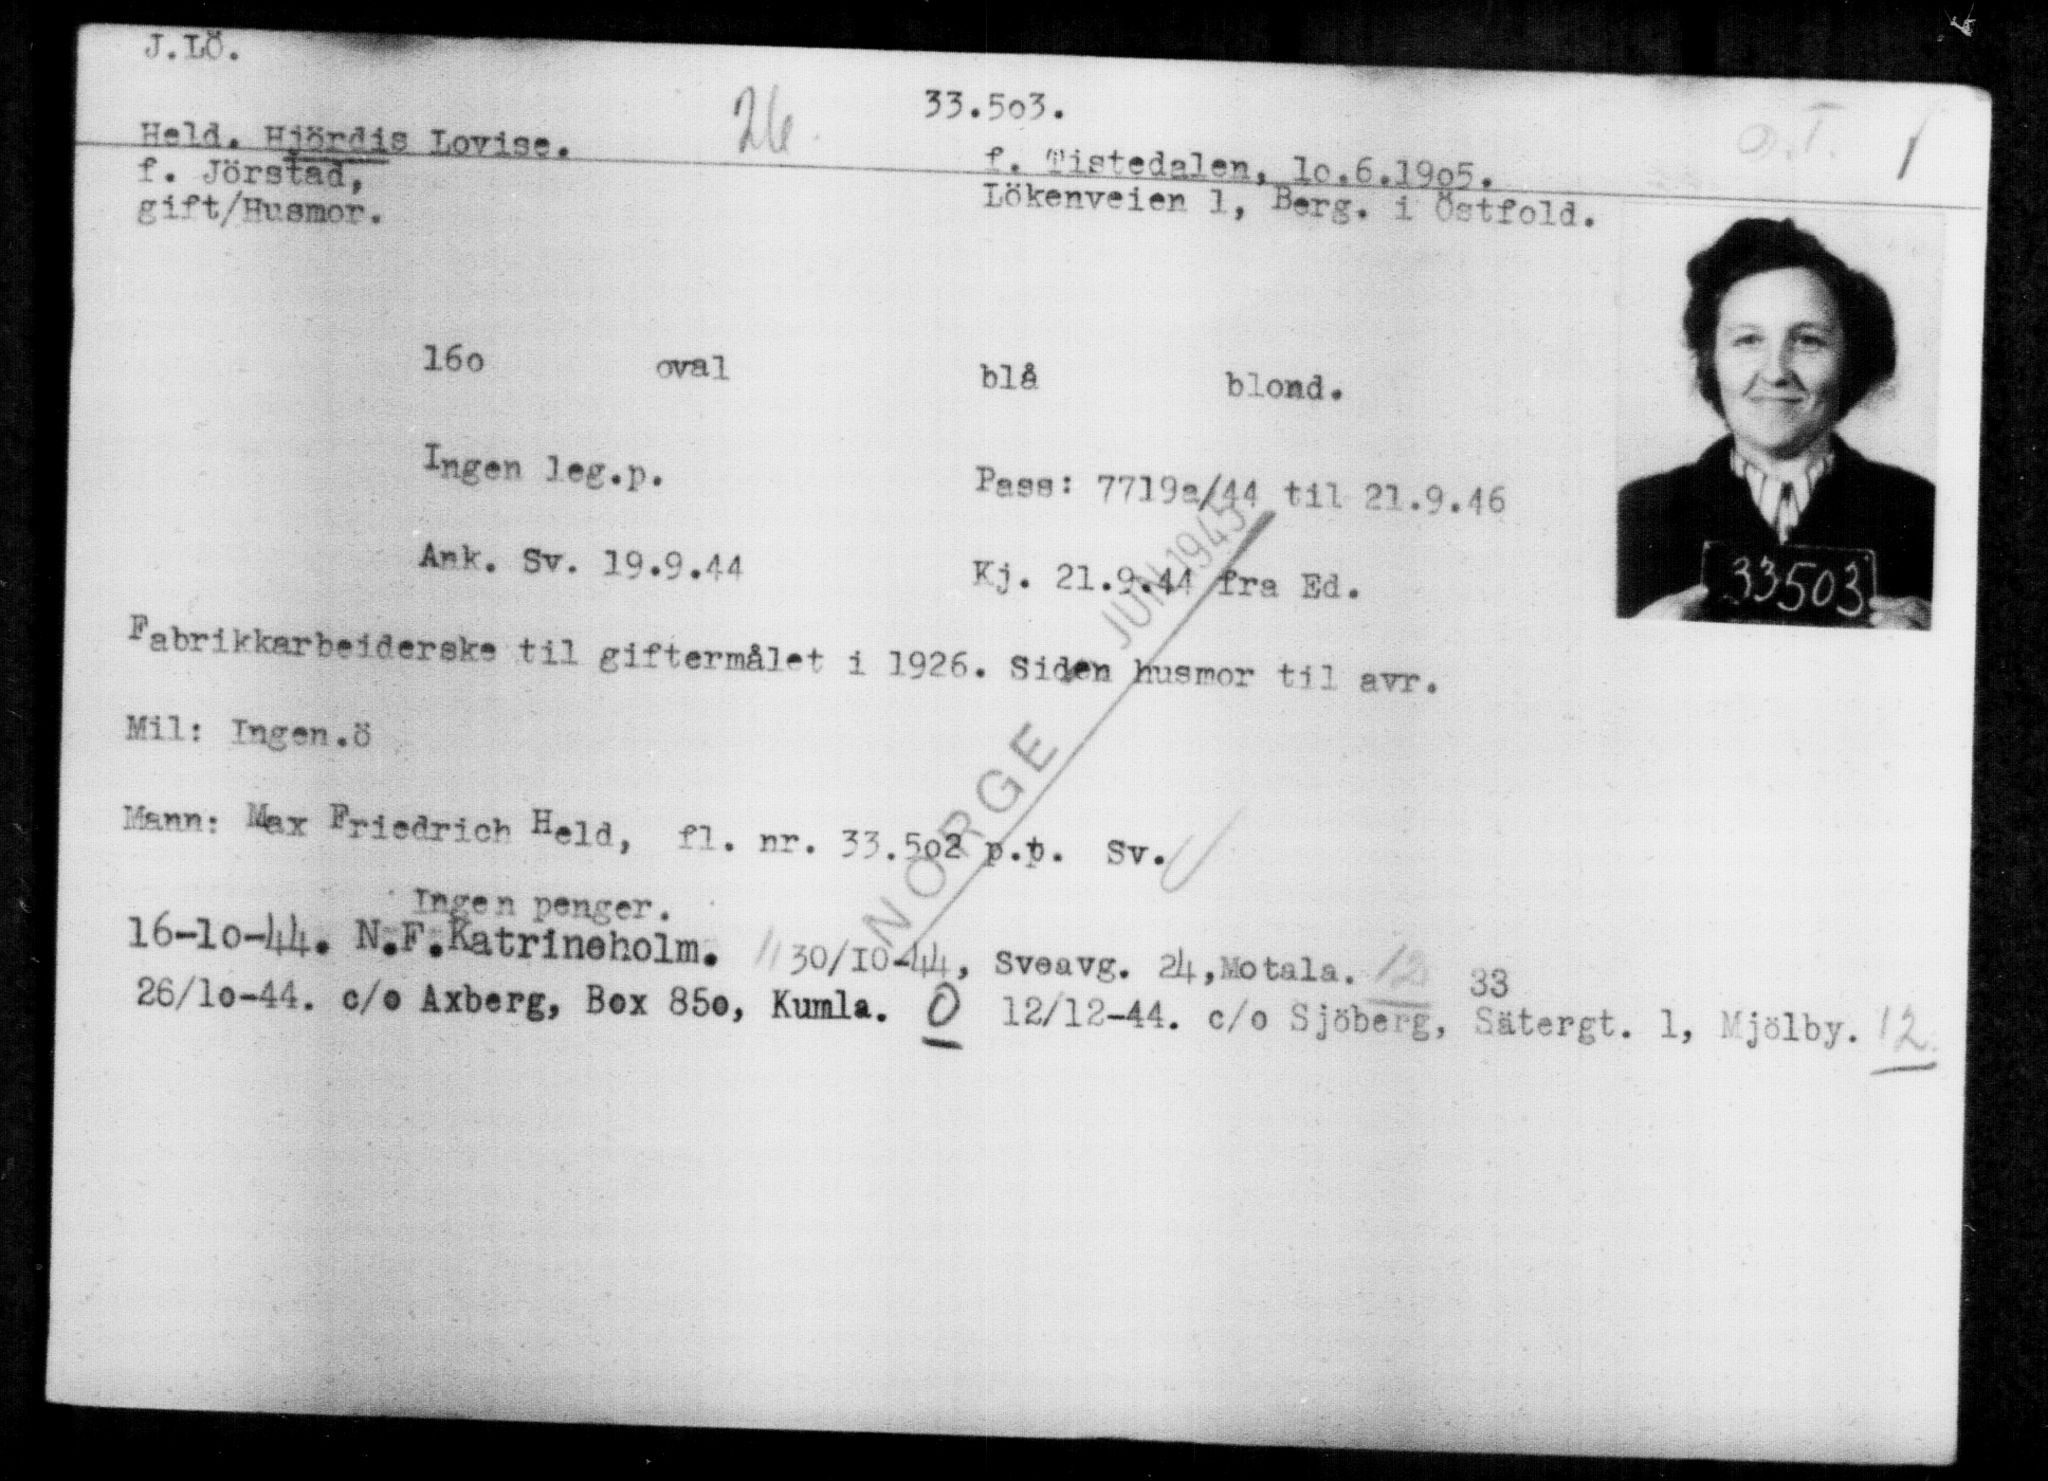 J.LÖ.
26. 33.5o3.
Held. Hjördis Lovise. f. Tistedalen, 1o.6.19o5.
f. Jörstad, Lökenveien 1, Berg. i Östfold.
gift/Husmor.
16o oval blå blond.
Ingen leg.p. Pass: 7719a/44 til 21.9.46
Ank. Sv. 19.9.44 Kj. 21.9.44 fra Ed.
33503
Fabrikkarbeiderske til giftermålet i 1926. Siden husmor til avr.
Mil: Ingen.ö
Mann: Max Friedrich Held, fl. nr. 33.5o2 p.t. Sv.
Ingen penger.
NORGE JUN 1945
16-1o-44. N.F.Katrineholm. 30/10-44, Sveavg. 24,Motala. 12 33
26/1o-44. c/o Axberg, Box 85o, Kumla. 0 12/12-44. c/o Sjöberg, Sätergt. 1, Mjölby. 12.